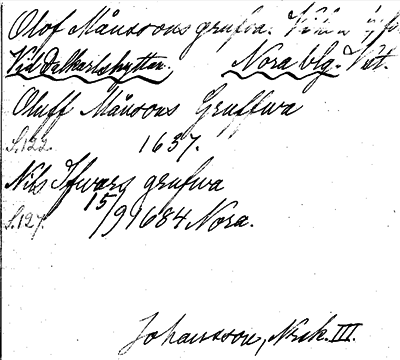 Olof Månssons grufva.
Vid Dalkarlshyttan, Nora blg. Vst.
Oluff Månsons Gruffwa
S.122. 1657.
Nils Ifwars grufwa
S.127. 15/9 1684 Nora.
Johansson, Nrik. III.